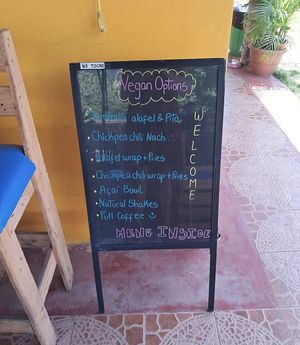 NO TOCAR
Vegan Options
alafel & Pita
• Chickpea chili Nach
falafel wrap + fries
• Chickpea chili wrap + fries
• Açaí Bowl
• Natural Shakes
• Full Coffee
WELCOME
MENU INSIDE